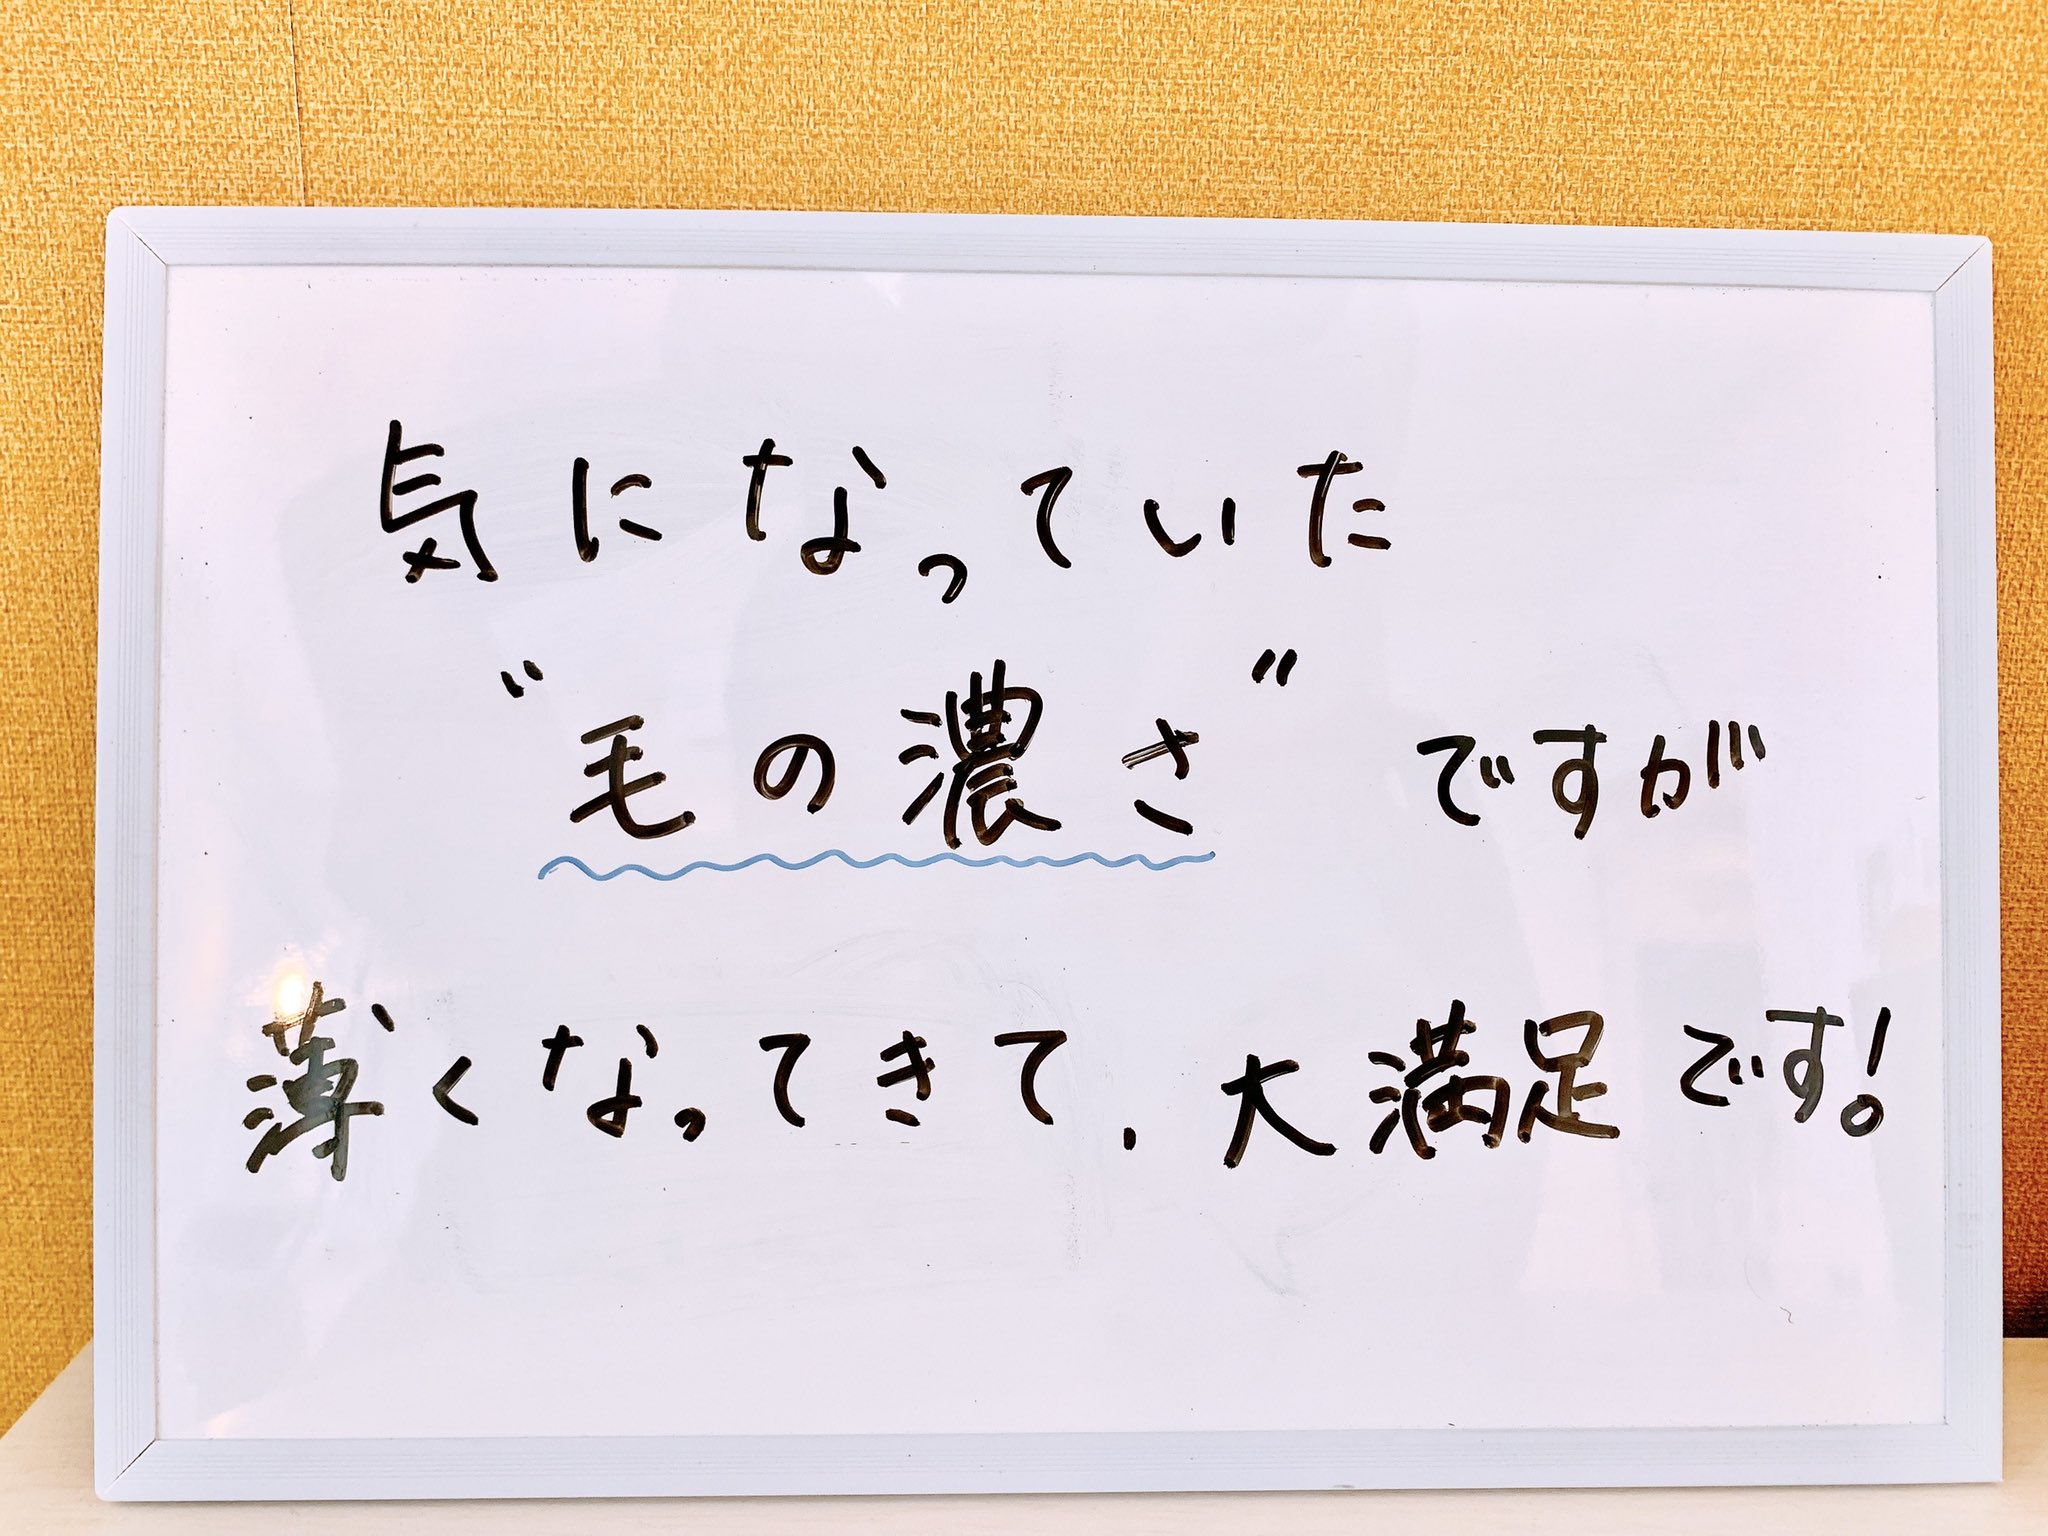 気になっていた
"毛の濃さ"ですが
薄くなってきて、大満足です!